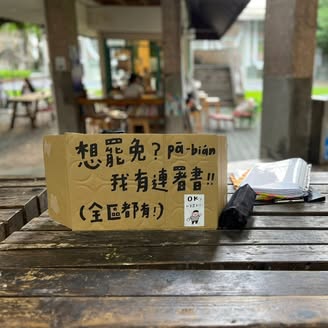 想罷免？pā-bián
我有連署書!!
(全區都有!)
OK